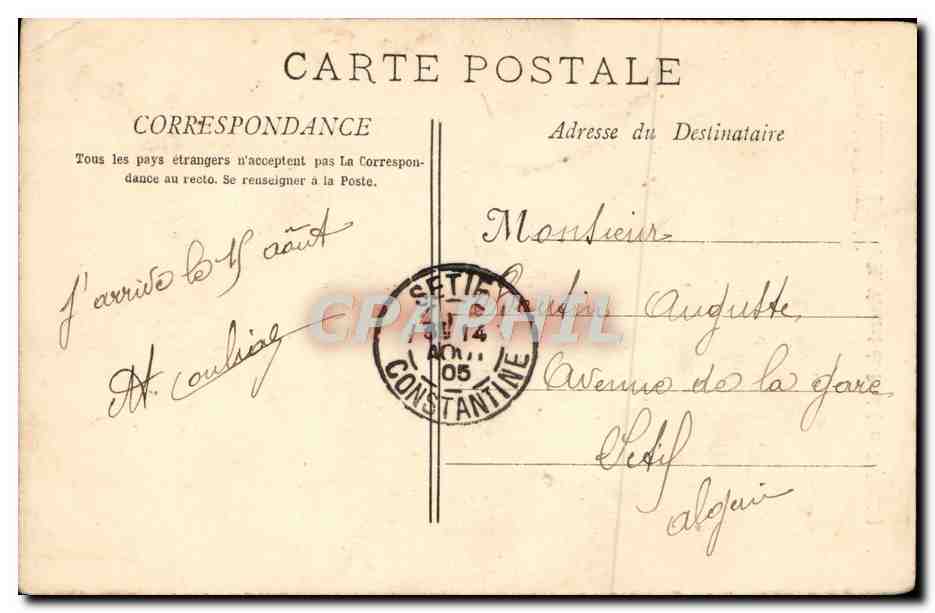 CARTE POSTALE
CORRESPONDANCE
Tous les pays étrangers n'acceptent pas La Correspon-
dance au recto. Se renseigner à la Poste.
j'arrive le 15 août
Adresse du Destinataire
Monsieur
Auguste
Avenue de la gare
Setif
algerie
SETIF
14
AOUT
05
CONSTANTINE
CPAPHIL.COM